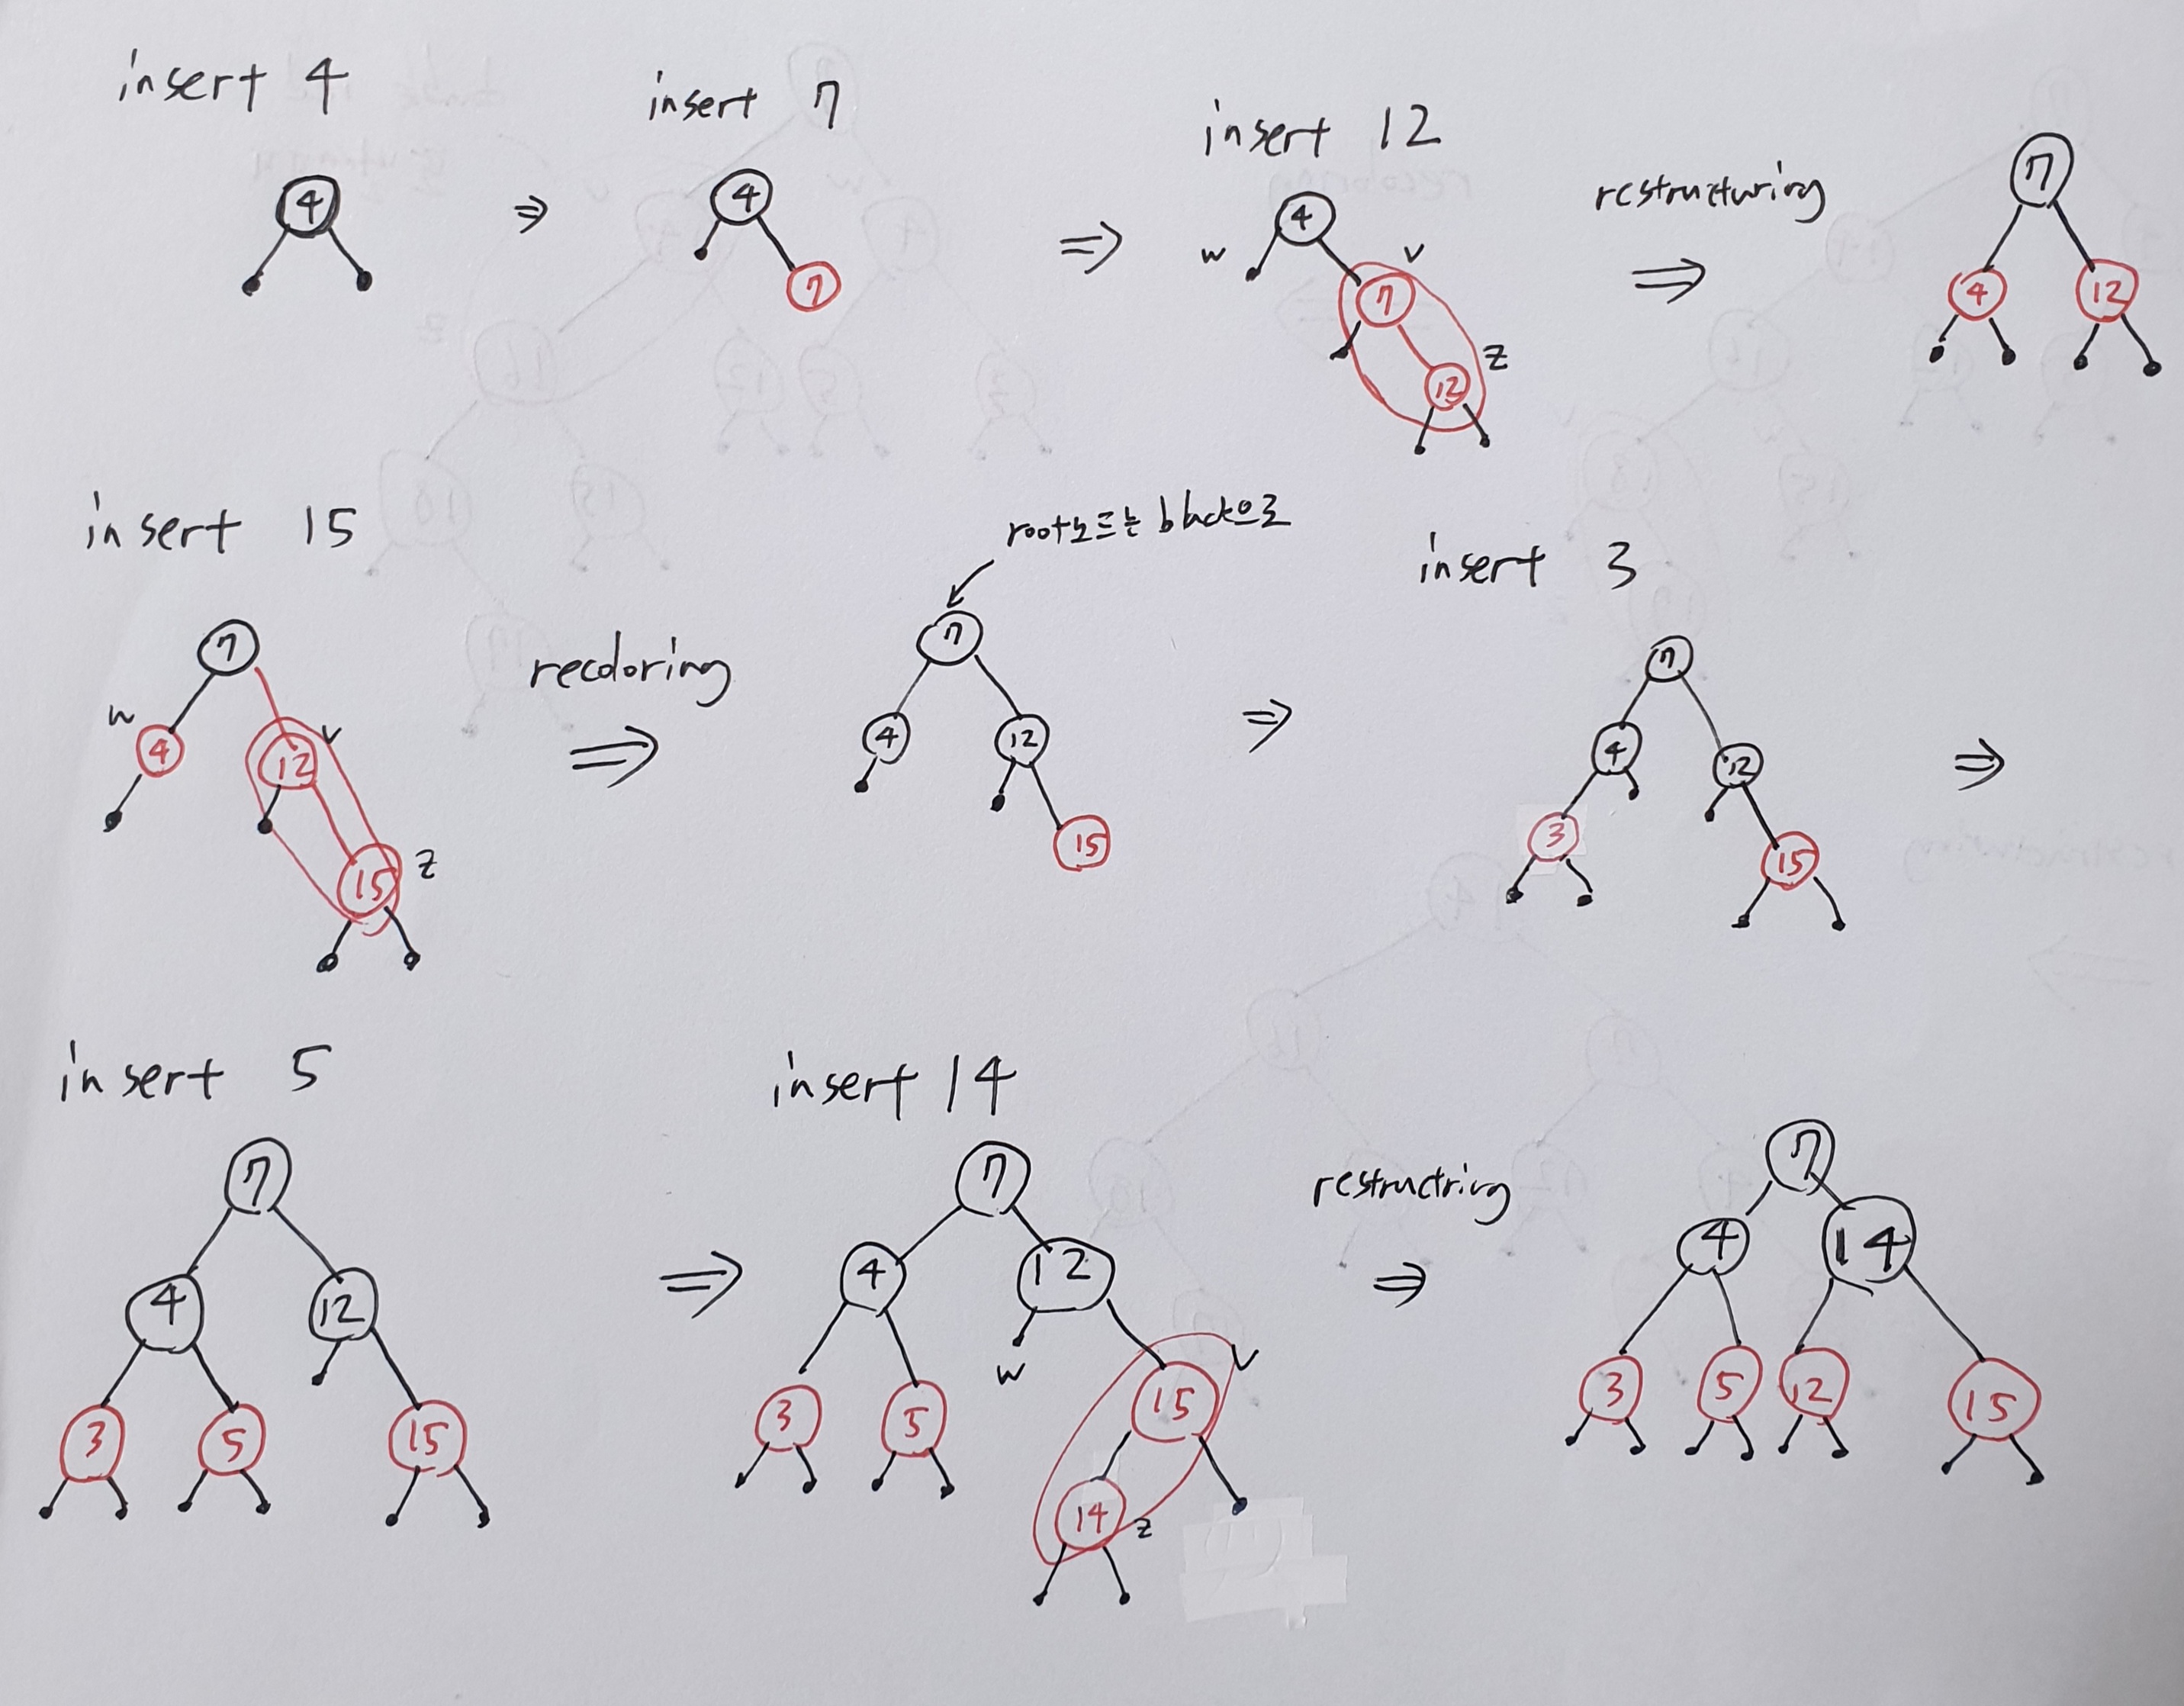 insert 4
insert 7
insert 12
restructuring
4
4
7
w
4
v
7
12
z
7
4
12
insert 15
root노드는 black으로
insert 3
7
w
4
12
v
15
z
recoloring
7
4
12
15
7
4
12
3
15
insert 5
insert 14
restructring
7
4
12
3
5
15
7
4
12
w
v
3
5
15
14
z
7
4
14
3
5
12
15